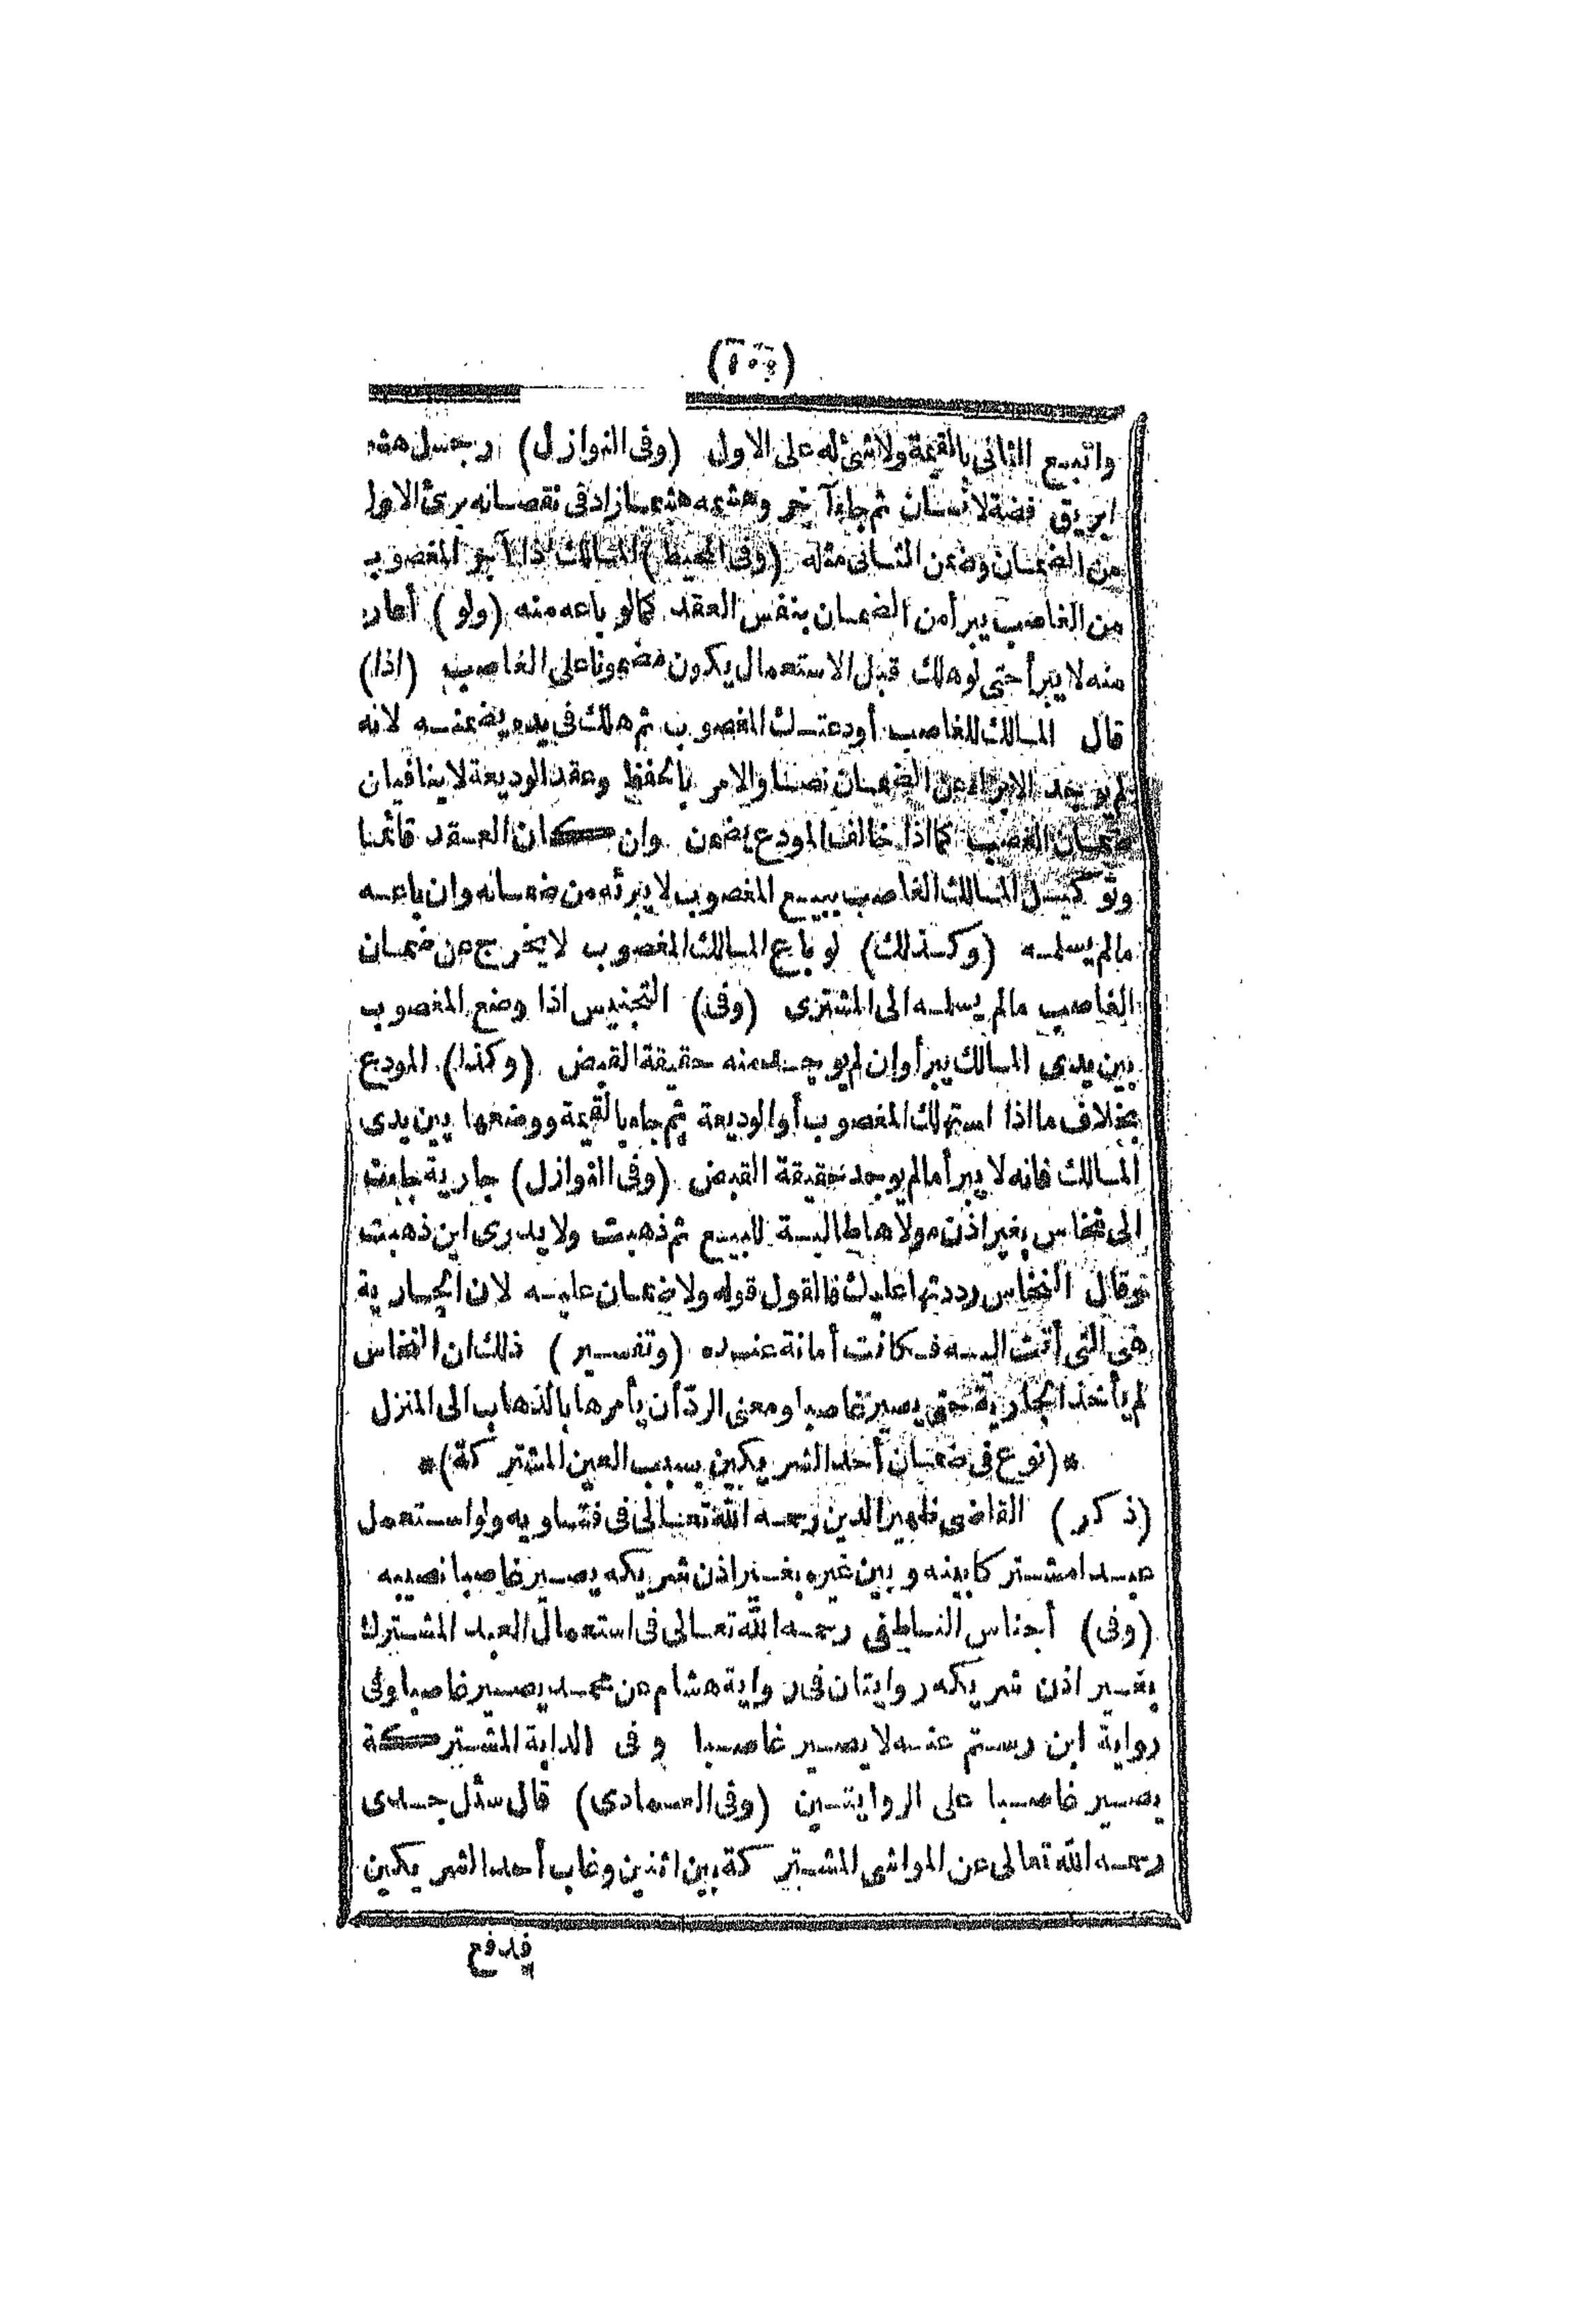 واتبع الثانى بالقيمة ولاشئ له على الاول (وفى النوازل) رجل هشم
ابريق فضة لانسان ثم جاء آخر وهشمه هشما زاد فى نقصانه برئ الاول
من الضمان وضمن الثانى مثله (وفى المحيط) المالك اذا آجر المغصوب
من الغاصب يبرأ من الضمان بنفس العقد كمالو باعه منه (ولو) أعاره
منه لا يبرأ حتى لوهلك قبل الاستعمال يكون مضمونا على الغاصب (اذا)
قال المالك للغاصب أودعتك المغصوب ثم هلك فى يده يضمنه لانه
لم يوجد الابراء عن الضمان نصا والامر بالحفظ وعقد الوديعة لا ينافيان
ضمان الغصب كما اذا خالف المودع يضمن وان كان العقد قائما
وتوكيل المالك الغاصب ببيع المغصوب لا يبرئه من ضمانه وان باعه
مالم يسلمه (وكذلك) لو باع المالك المغصوب لا يخرج عن ضمان
الغاصب مالم يسلمه الى المشترى (وفى) التجنيس اذا وضع المغصوب
بين يدى المالك يبرأ وان لم يوجد منه حقيقة القبض (وكذا) المودع
بخلاف ما اذا استهلك المغصوب أو الوديعة ثم جاء بالقيمة ووضعها بين يدى
المالك فانه لا يبرأ مالم يوجد حقيقة القبض (وفى النوازل) جارية جاءت
الى نخاس بغير اذن مولاها طالبة للبيع ثم ذهبت ولا يدرى اين ذهبت
وقال النخاس رددتها عليك فالقول قوله ولا ضمان عليه لان الجارية
هى التى أتت اليه فكانت أمانة عنده (وتفسير) ذلك ان النخاس
لم يأخذ الجارية حتى يصير غاصبا ومعنى الرد أن يأمرها بالذهاب الى المنزل
*(نوع فى ضمان أحد الشريكين بسبب العين المشتركة)*
(ذكر) القاضى ظهير الدين رحمه الله تعالى فى فتاويه ولو استعمل
عبدا مشتركا بينه وبين غيره بغير اذن شريكه يصير غاصبا نصيبه
(وفى) أجناس الناطفى رحمه الله تعالى فى استعمال العبد المشترك
بغير اذن شريكه روايتان فى رواية هشام عن محمد يصير غاصبا وفى
رواية ابن رستم عنه لا يصير غاصبا وفى الدابة المشتركة
يصير غاصبا على الروايتين (وفى العمادى) قال سئل جدى
رحمه الله تعالى عن المواشى المشتركة بين اثنين وغاب أحد الشريكين
فدفع